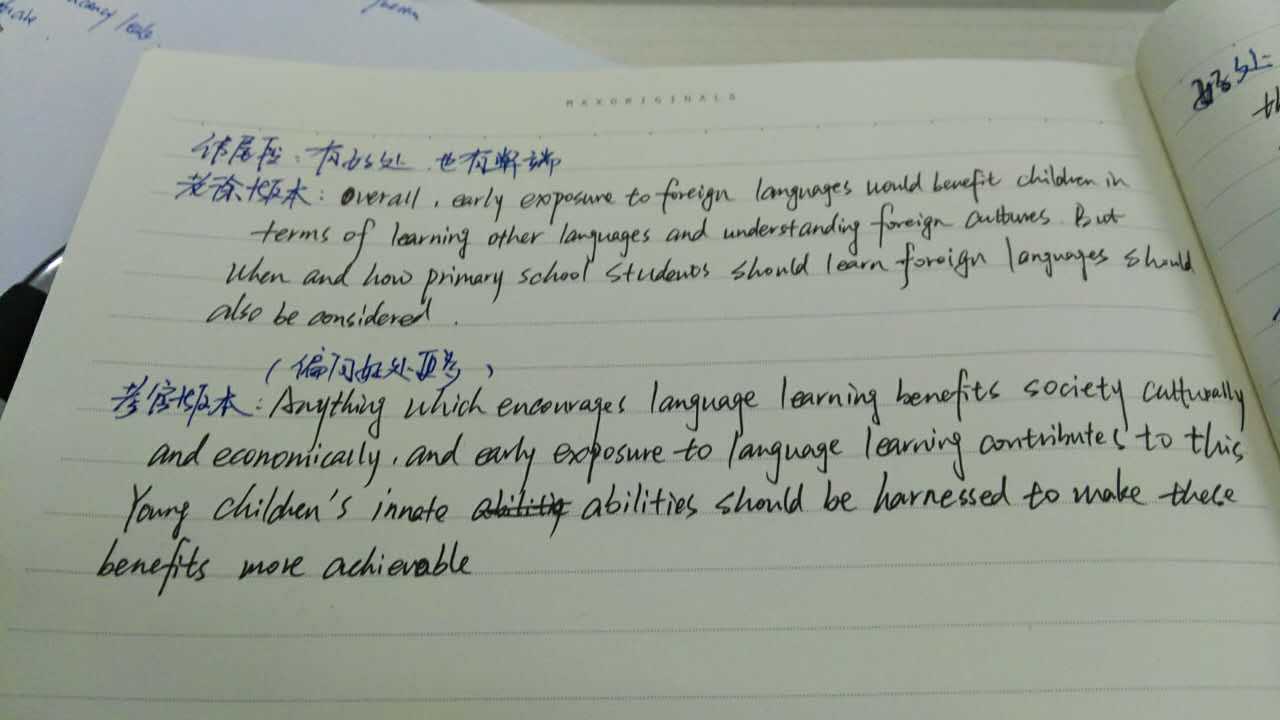 leade
MAXORIGINALS
好处:
th
结尾段：有好处 也有弊端
老徐版本：overall, early exposure to foreign languages would benefit children in
terms of learning other languages and understanding foreign cultures. But
when and how primary school students should learn foreign languages should
also be considered.
（偏向好处更多）
考官版本：Anything which encourages language learning benefits society culturally
and economically, and early exposure to language learning contributes to this
Young children's innate abilities should be harnessed to make these
benefits more achievable